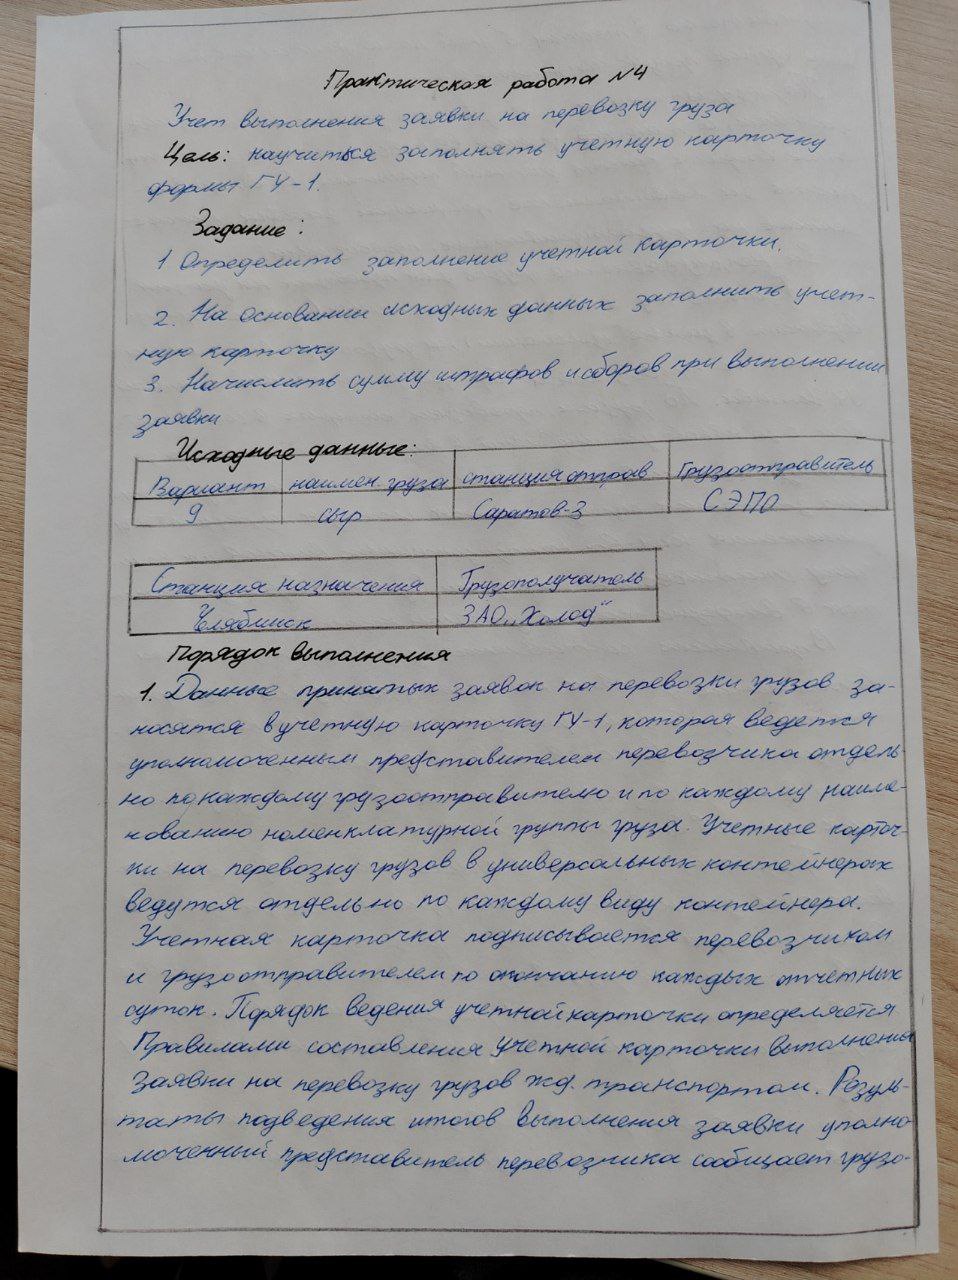 Практическая работа N4
Учет выполнения заявки на перевозку груза
Цель: научиться заполнять учетную карточку
формы ГУ-1.
Задание:
1 Определить заполнение учетной карточки.
2. На основании исходных данных заполнить учет-
ную карточку
3. Начислить сумму штрафов и сборов при выполнении
заявки
Исходные данные:
Вариант наимен. груза станция отправ Грузоотправитель
9 сыр Саратов-3 СЭПО
Станция назначения Грузополучатель
Челябинск ЗАО „Холод“
Порядок выполнения
1. Данные принятых заявок на перевозки грузов за-
носятся в учетную карточку ГУ-1, которая ведется
уполномоченным представителем перевозчика отдель
но по каждому грузоотправителю и по каждому наиме-
нованию номенклатурной группы груза. Учетные карточ-
ки на перевозку грузов в универсальных контейнерах
ведутся отдельно по каждому виду контейнера.
Учетная карточка подписывается перевозчиком
и грузоотправителем по окончанию каждых отчетных
суток. Порядок ведения учетной карточки определяется
Правилами составления учетной карточки выполнения
заявки на перевозку грузов жд. транспортом. Резуль-
таты подведения итогов выполнения заявки уполно
моченный представитель перевозчика сообщает грузо-